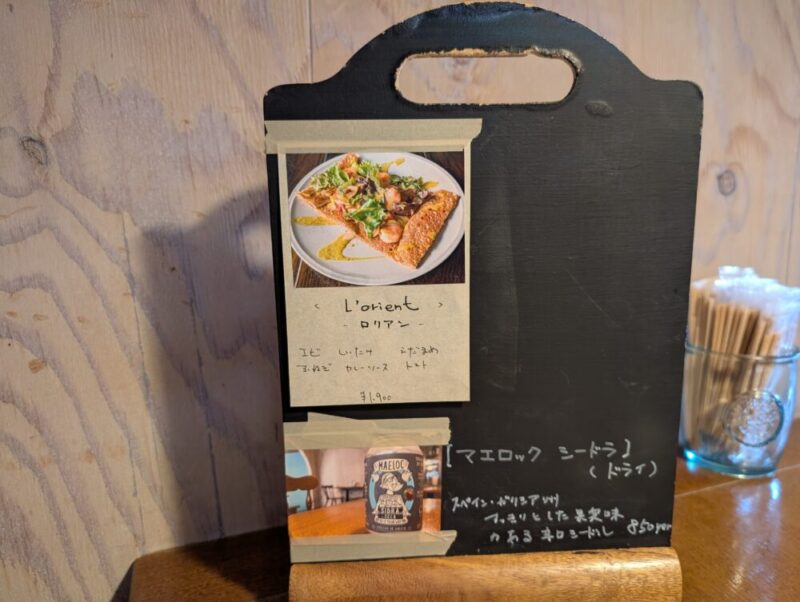 < L'orient >
- ロリアン -
エビ しいたけ えだまめ
玉ねぎ カレーソース トマト
¥1,900
MAELOC
SIDRA
SECA
[マエロック シードラ]
(ドライ)
スペイン・ガリシア州
すっきりとした果実味
がある辛口シードル 850yen